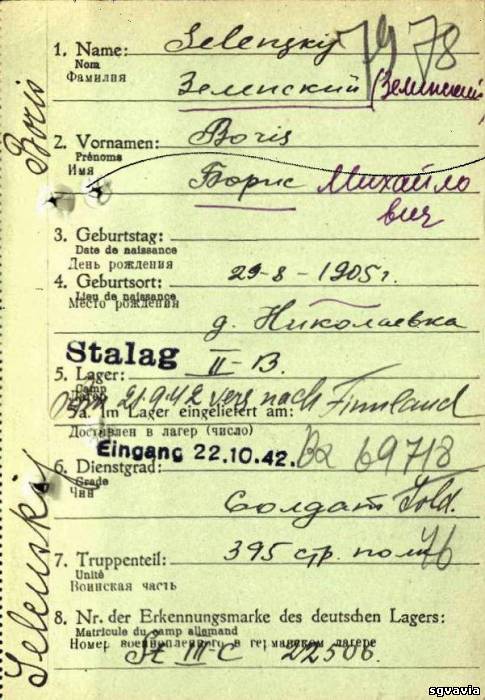 1. Name: Selenskij
Nom
Фамилия Зеленский (Зелинский)
7978
Boris
2. Vornamen: Boris
Prénoms
Имя Борис Михайло
вич
3. Geburtstag:
Date de naissance
День рождения
29-8-1905г.
4. Geburtsort:
Lieu de naissance
Место рождения
д. Николаевка
Stalag II-B.
5. Lager:
Camp
Лагерь
21.9.42 vers nach Finnland
5a. Im Lager eingeliefert am:
Доставлен в лагерь (число)
Eingang 22.10.42. 69718
6. Dienstgrad:
Grade
Чин
Солдат Sold.
7. Truppenteil: 395 стр. полк
Unité
Воинская часть
8. Nr. der Erkennungsmarke des deutschen Lagers:
Matricule du camp allemand
Номер военнопленного в германском лагере
St III-C 22506.
Selenskij
sgvavia